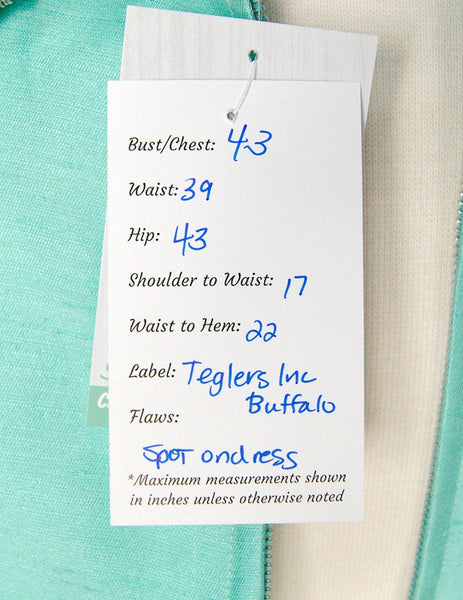 Bust/Chest: 43
Waist: 39
Hip: 43
Shoulder to Waist: 17
Waist to Hem: 22
Label: Teglers Inc
Buffalo
Flaws:
Spot on dress
*Maximum measurements shown
in inches unless otherwise noted